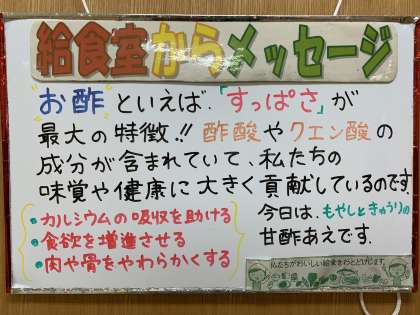 給食室からメッセージ
"お酢"といえば、「すっぱさ」が
最大の特徴!! 酢酸やクエン酸の
成分が含まれていて、私たちの
味覚や健康に大きく貢献しているのです。
・カルシウムの吸収を助ける
・食欲を増進させる
・肉や骨をやわらかくする
今日は、もやしときゅうりの
甘酢あえです。
私たちがおいしい給食をおとどけします。